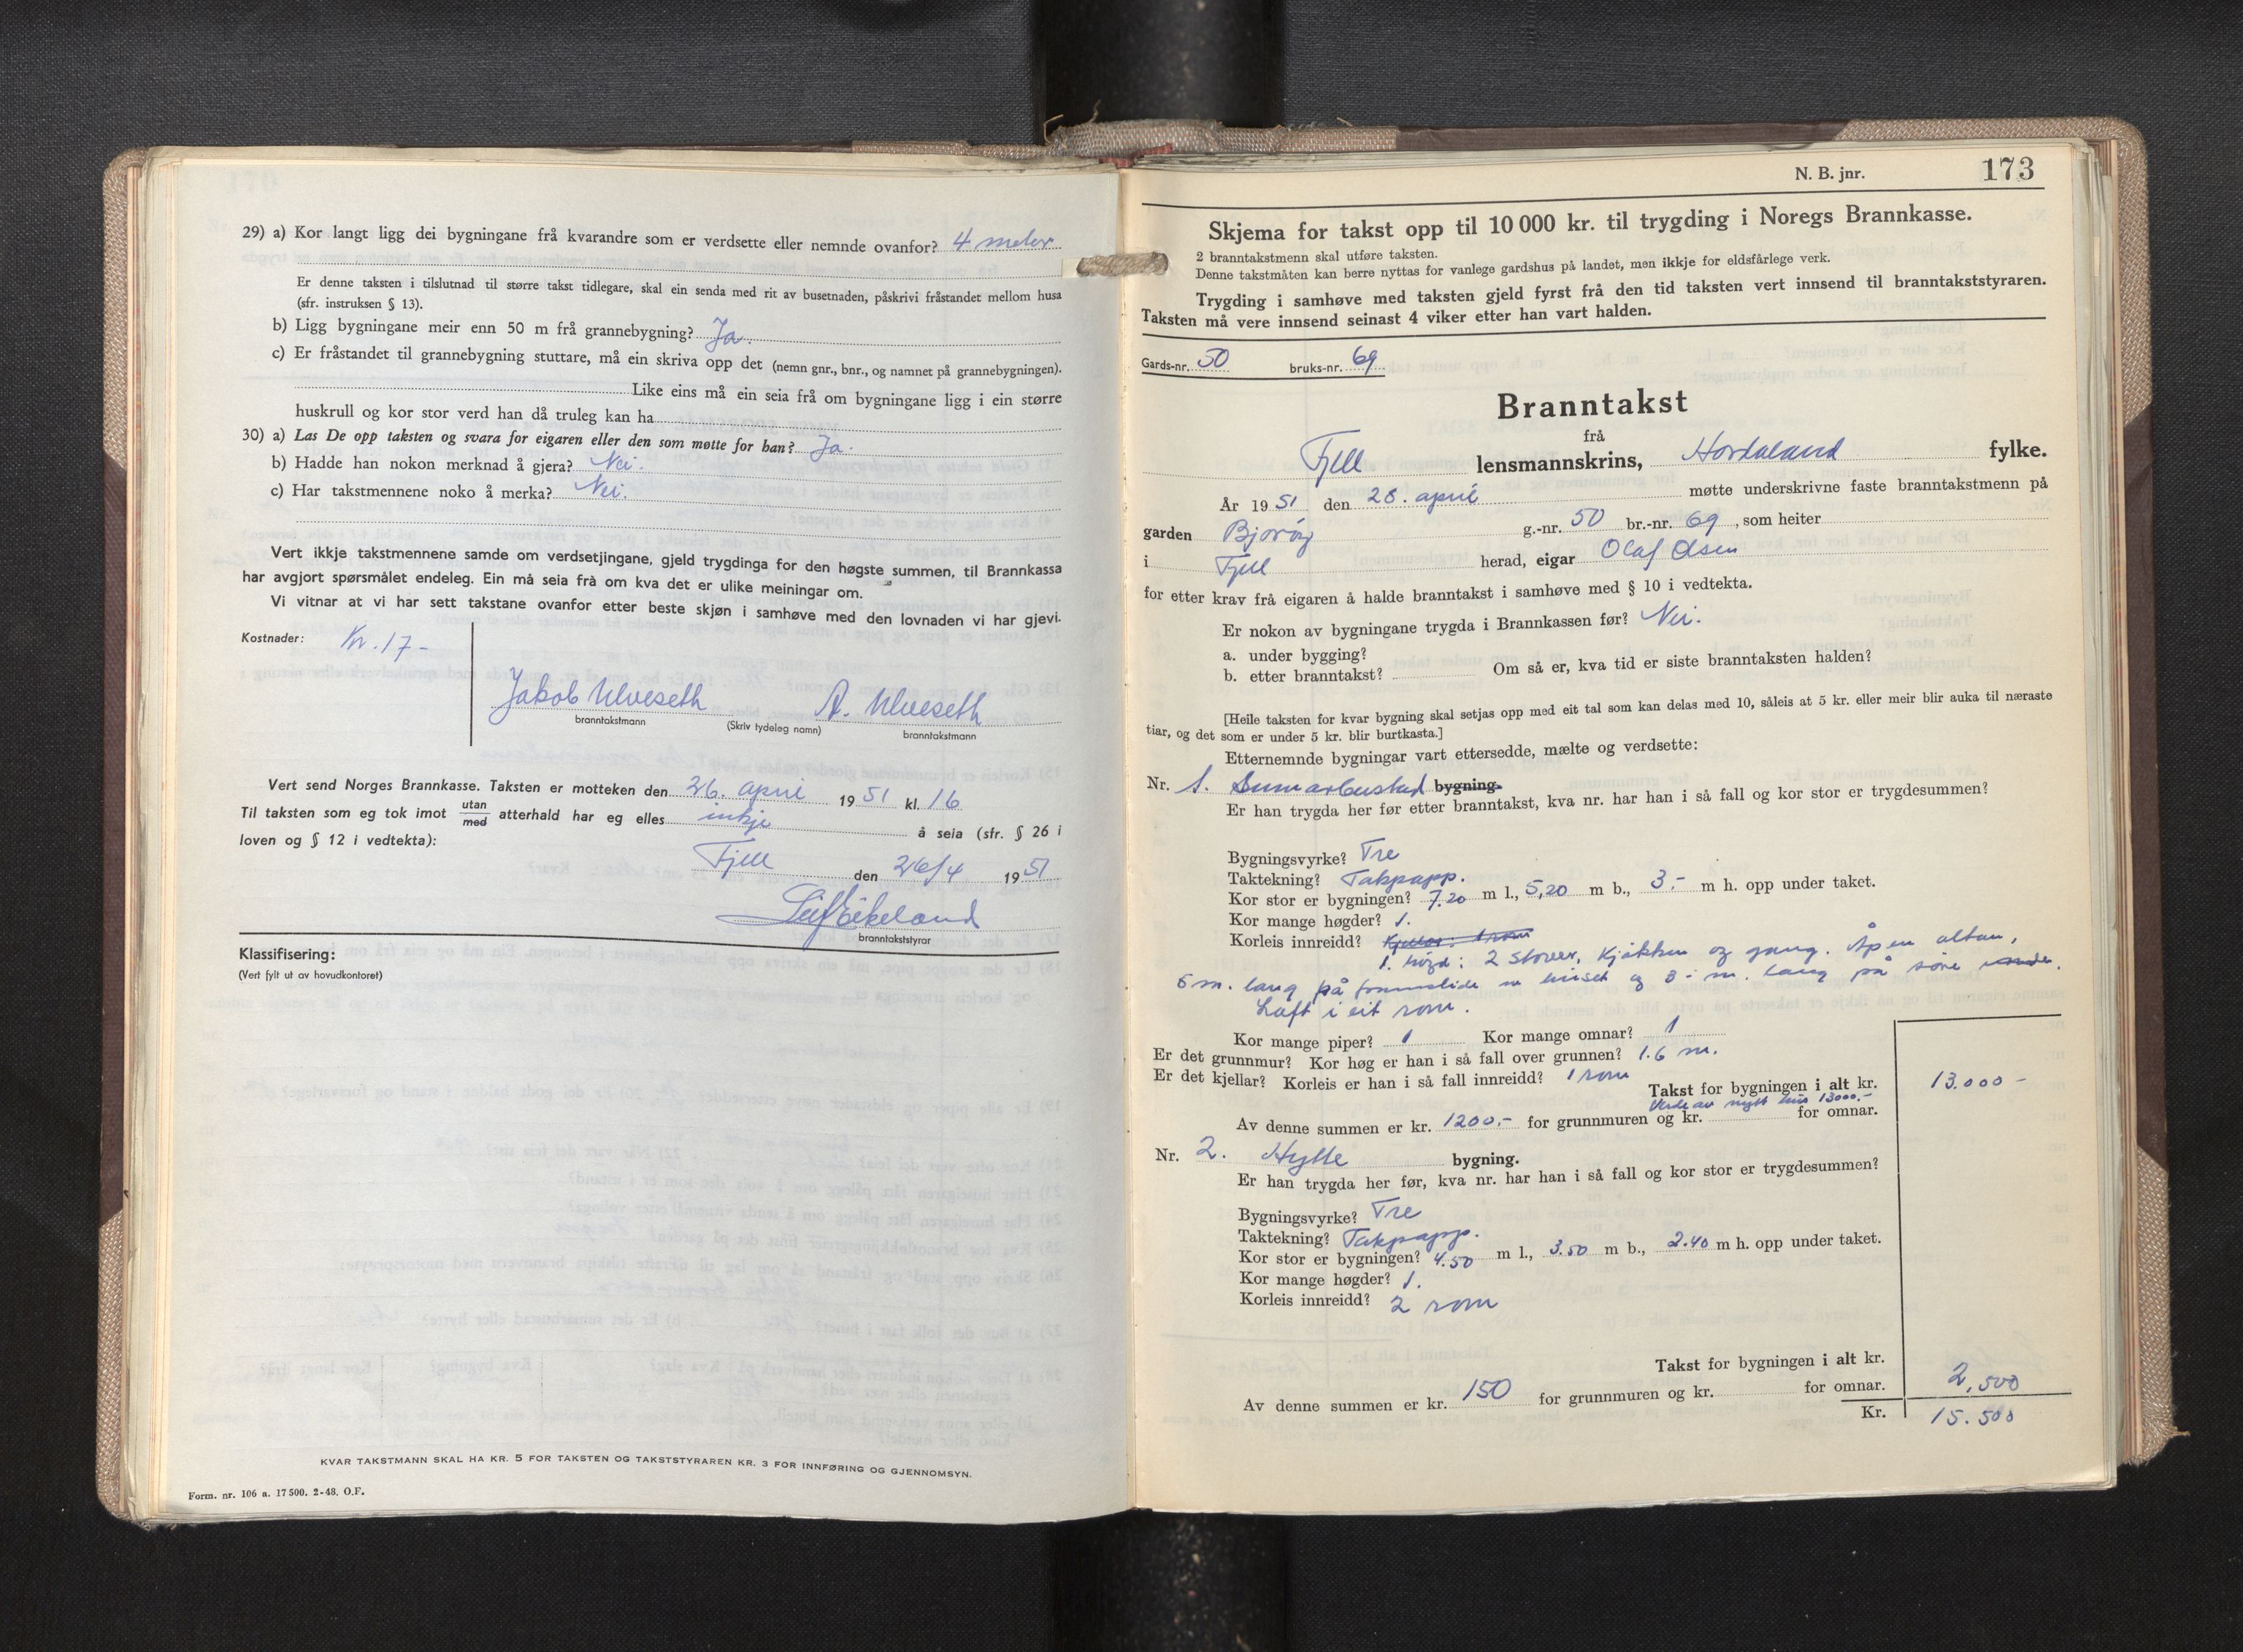 29) a) Kor langt ligg dei bygningane frå kvarandre som er verdsette eller nemnde ovanfor? 4 meter
Er denne taksten i tilslutnad til større takst tidlegare, skal ein senda med rit av busetnaden, påskrivi fråstandet mellom husa
(sfr. instruksen § 13).
b) Ligg bygningane meir enn 50 m frå grannebygning? Ja.
c) Er fråstandet til grannebygning stuttare, må ein skriva opp det (nemn gnr., bnr., og namnet på grannebygningen).
Like eins må ein seia frå om bygningane ligg i ein større
huskrull og kor stor verd han då truleg kan ha
30) a) Las De opp taksten og svara for eigaren eller den som møtte for han? Ja.
b) Hadde han nokon merknad å gjera? Nei.
c) Har takstmennene noko å merka? Nei.
Vert ikkje takstmennene samde om verdsetjingane, gjeld trygdinga for den høgste summen, til Brannkassa
har avgjort spørsmålet endeleg. Ein må seia frà om kva det er ulike meiningar om.
Vi vitnar at vi har sett takstane ovanfor etter beste skjøn i samhøve med den lovnaden vi har gjevi.
Kostnader: Kr. 17 -
Jakob Ulveseth A. Ulveseth
branntakstmann (Skriv tydeleg namn) branntakstmann
Vert send Norges Brannkasse. Taksten er motteken den 26. april 19 51 kl. 16
Til taksten som eg tok imot utan/med atterhald har eg elles inkje å seia (sfr. § 26 i
loven og § 12 i vedtekta):
Fjell den 26/4 19 51
Leif Eikeland
branntakststyrar
Klassifisering:
(Vert fylt ut av hovudkontoret)
KVAR TAKSTMANN SKAL HA KR. 5 FOR TAKSTEN OG TAKSTSTYRAREN KR. 3 FOR INNFØRING OG GJENNOMSYN.
Form. nr. 106 a. 17 500. 2-48. O.F.
N. B. jnr. 173
Skjema for takst opp til 10 000 kr. til trygding i Noregs Brannkasse.
2 branntakstmenn skal utføre taksten.
Denne takstmåten kan berre nyttas for vanlege gardshus på landet, men ikkje for eldsfårlege verk.
Trygding i samhøve med taksten gjeld fyrst frå den tid taksten vert innsend til branntakststyraren.
Taksten må vere innsend seinast 4 viker etter han vart halden.
Gards-nr. 50 bruks-nr. 69
Branntakst
frå
Fjell lensmannskrins, Hordaland fylke.
År 19 51 den 28. april møtte underskrivne faste branntakstmenn på
garden Bjorøy g.-nr. 50 br.-nr. 69, som heiter
i Fjell herad, eigar Olaf Olsen
for etter krav frå eigaren å halde branntakst i samhøve med § 10 i vedtekta.
Er nokon av bygningane trygda i Brannkassen før? Nei.
a. under bygging?
b. etter branntakst? Om så er, kva tid er siste branntaksten halden?
[Heile taksten for kvar bygning skal setjas opp med eit tal som kan delas med 10, såleis at 5 kr. eller meir blir auka til næraste
tiar, og det som er under 5 kr. blir burtkasta.]
Etternemnde bygningar vart ettersedde, mælte og verdsette:
Nr. 1. Sumarbustad bygning.
Er han trygda her før etter branntakst, kva nr. har han i så fall og kor stor er trygdesummen?
Bygningsvyrke? Tre
Taktekning? Takpapp.
Kor stor er bygningen? 7.20 m l., 5,20 m b., 3.- m h. opp under taket.
Kor mange høgder? 1.
Korleis innreidd? Kjellar: 1 rom
1. høgd: 2 stover, kjøkken og gang. Åpen altan,
6 m. lang på framsida av huset og 3 - m. lang på søre
Loft i eit rom.
Kor mange piper? 1 Kor mange omnar? 1
Er det grunnmur? Kor høg er han i så fall over grunnen? 1.6 m.
Er det kjellar? Korleis er han i så fall innreidd? 1 rom
Takst for bygningen i alt kr. 13.000 -
Verde av nytt hus 13000.-
Av denne summen er kr. 1200.- for grunnmuren og kr. for omnar.
Nr. 2. Hytte bygning.
Er han trygda her før, kva nr. har han i så fall og kor stor er trygdesummen?
Bygningsvyrke? Tre
Taktekning? Takpapp.
Kor stor er bygningen? 4.50 m l., 3.50 m b., 2.40 m h. opp under taket.
Kor mange høgder? 1.
Korleis innreidd? 2 rom
Takst for bygningen i alt kr. 2,500
Av denne summen er kr. 150 for grunnmuren og kr. for omnar.
Kr. 15.500